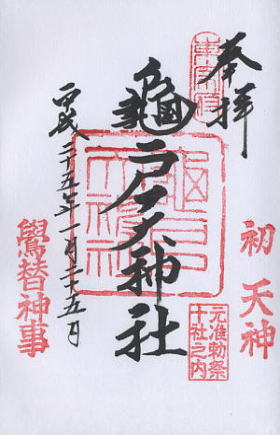 奉拝
初天神
元准勅祭
十社之内
龜戸天神社
平成二十五年一月二十五日
鷽替神事